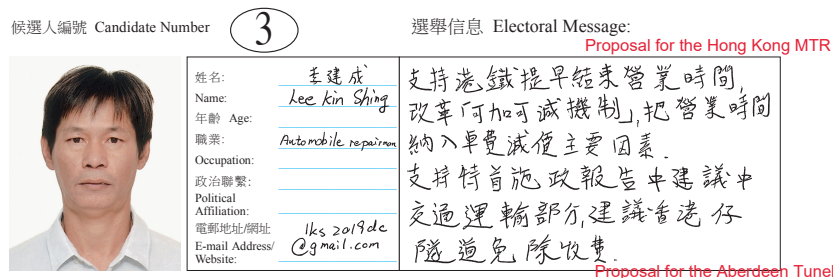 候選人編號 Candidate Number 3
選舉信息 Electoral Message:
Proposal for the Hong Kong MTR
姓名: 李建成
Name: Lee kin Shing
年齡 Age:
職業: Automobile repairman
Occupation:
政治聯繫:
Political
Affiliation:
電郵地址/網址 lks2019dc
E-mail Address/ @gmail.com
Website:
支持港鐵提早結束營業時間,
改革「可加可減機制」,把營業時間
納入車費減價主要因素.
支持特首施政報告中建議中
交通運輸部分,建議香港仔
隧道免除收費.
Proposal for the Aberdeen Tunel